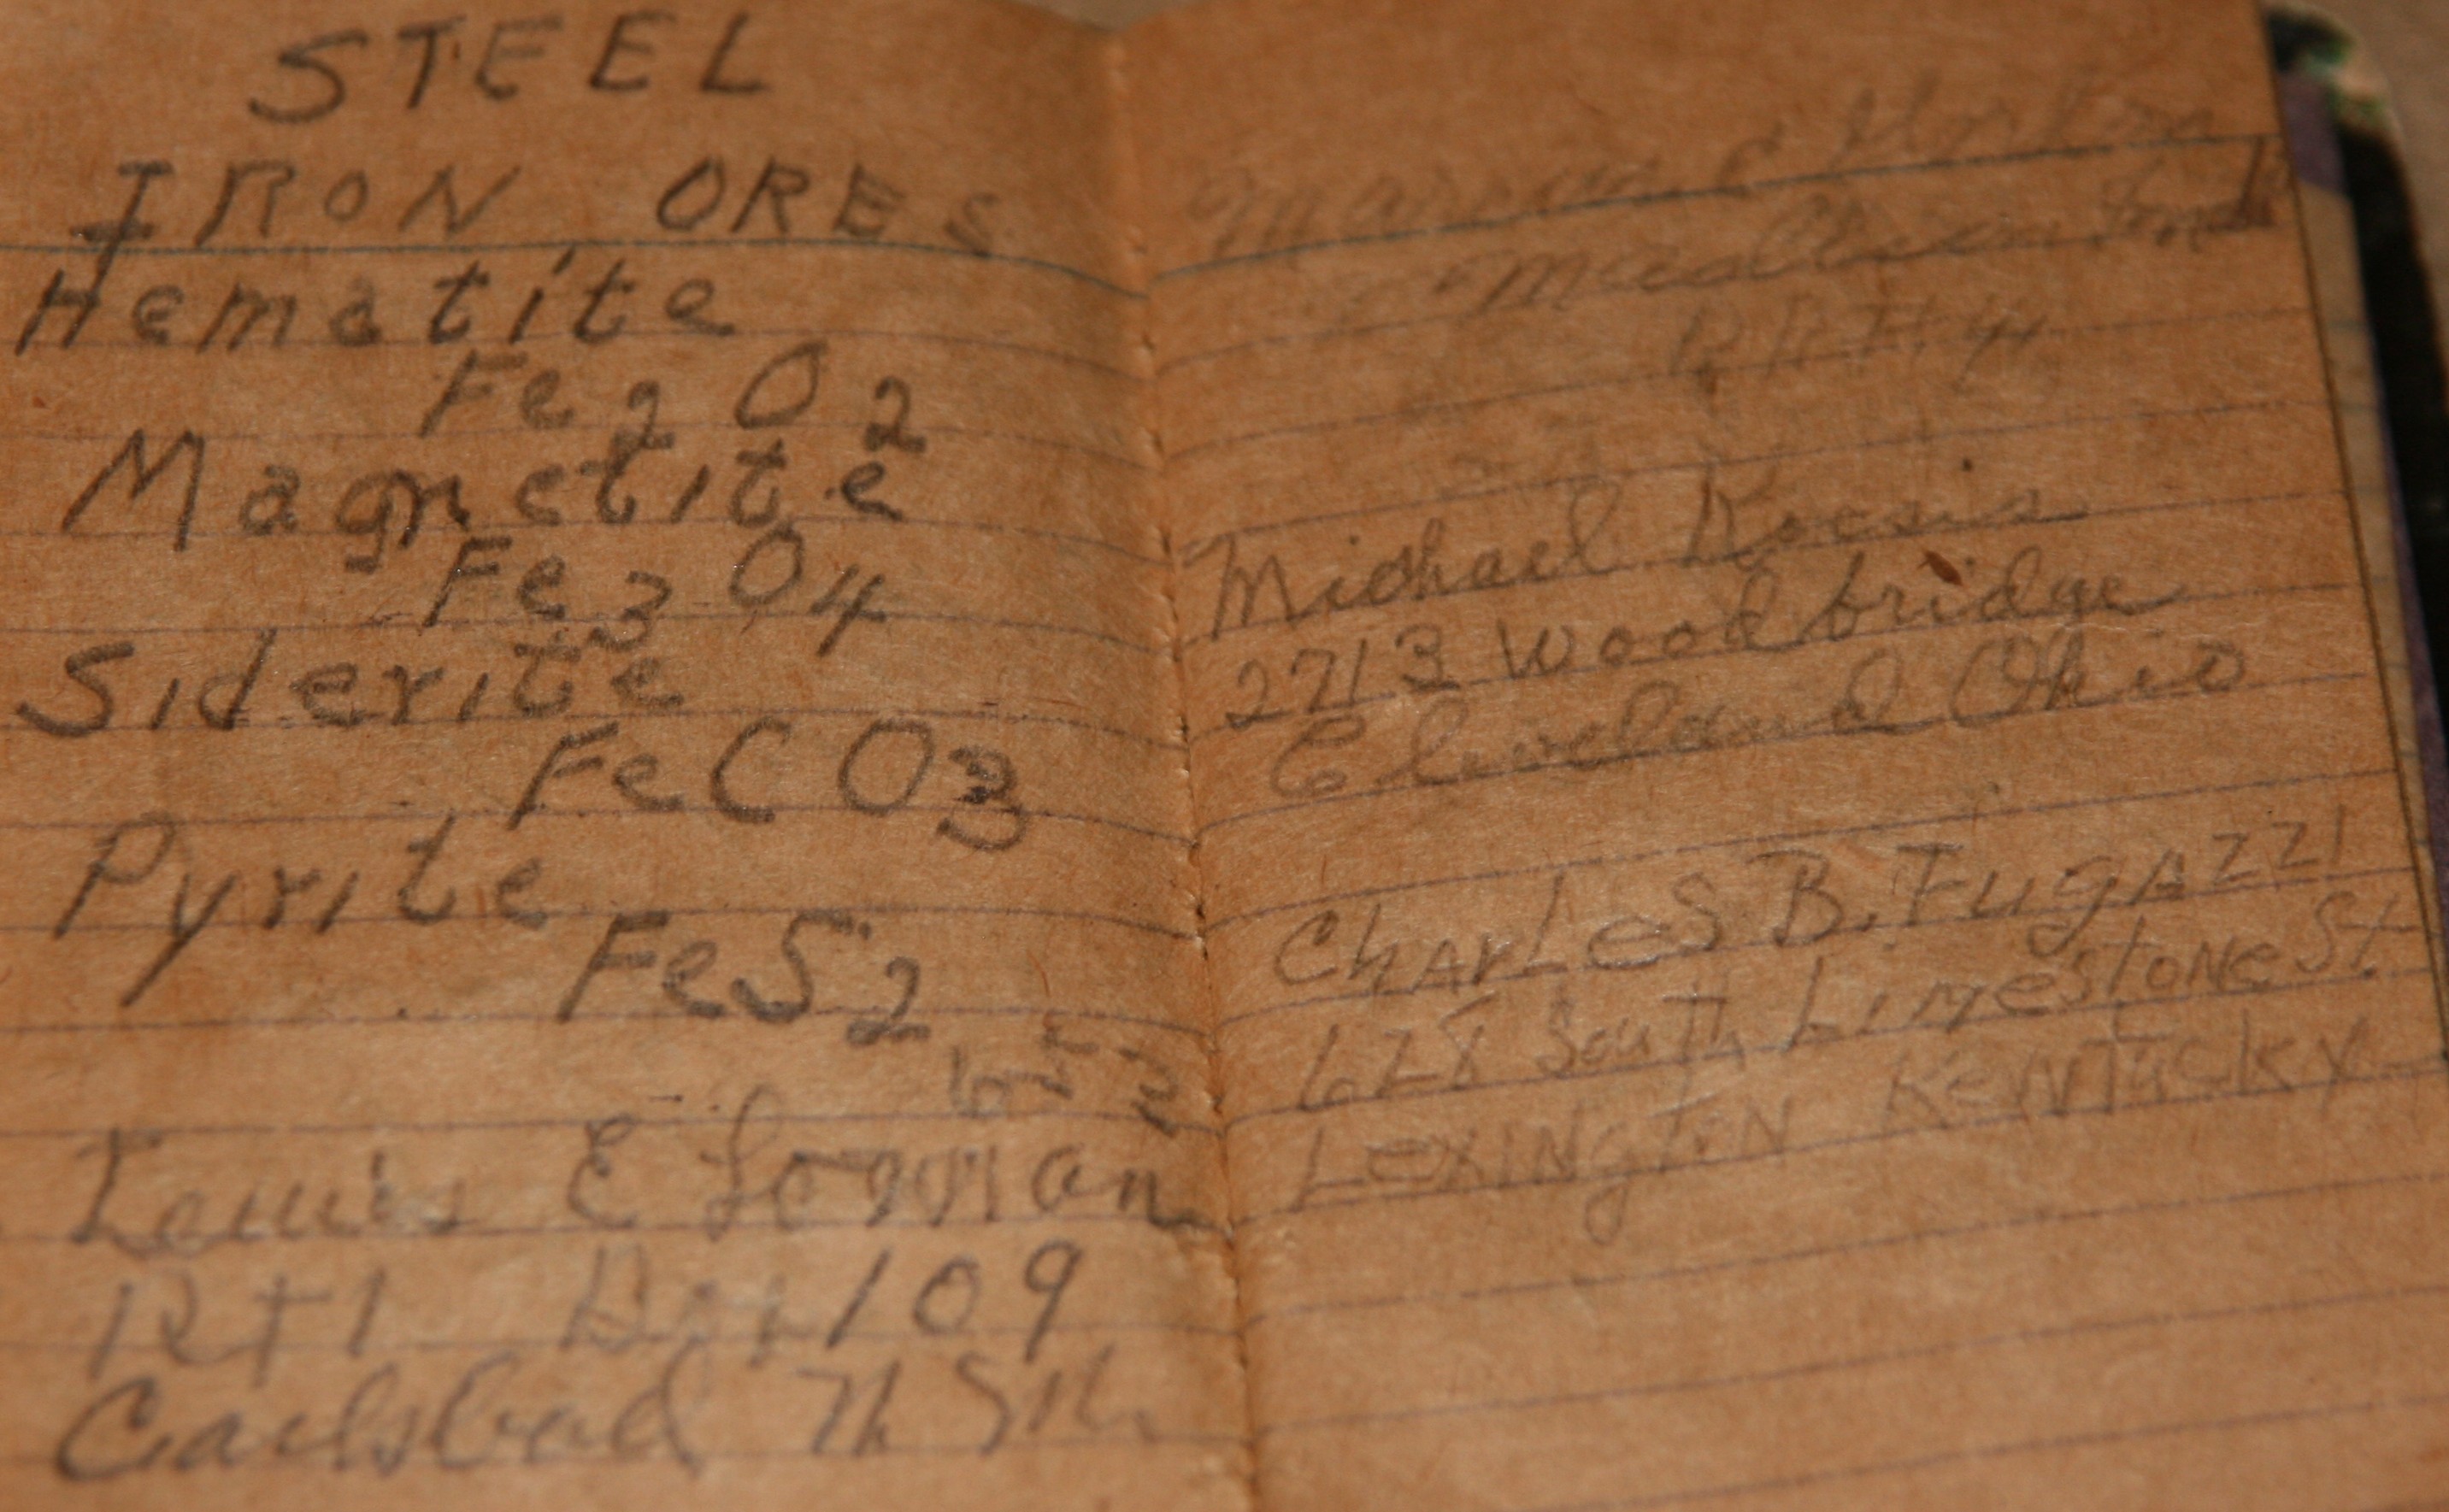 STEEL
IRON ORES
Hematite
Fe2O2
Magnetite
Fe3O4
Siderite
FeCO3
Pyrite
FeS2
653
Lewis E
Rt 1 Box 109
Carlsbad N M
Marion E
Madison Ind
R R # 4
Michael Kocsis
2713 Woodbridge
Cleveland Ohio
CharLeS B. FugAzzi
628 South LimestoNe St.
LexiNgtoN KeNtucky